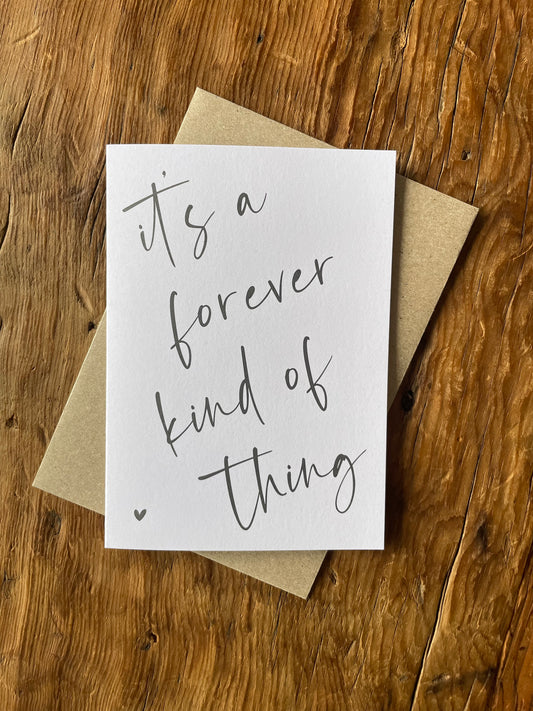 it's a
forever
kind of
thing